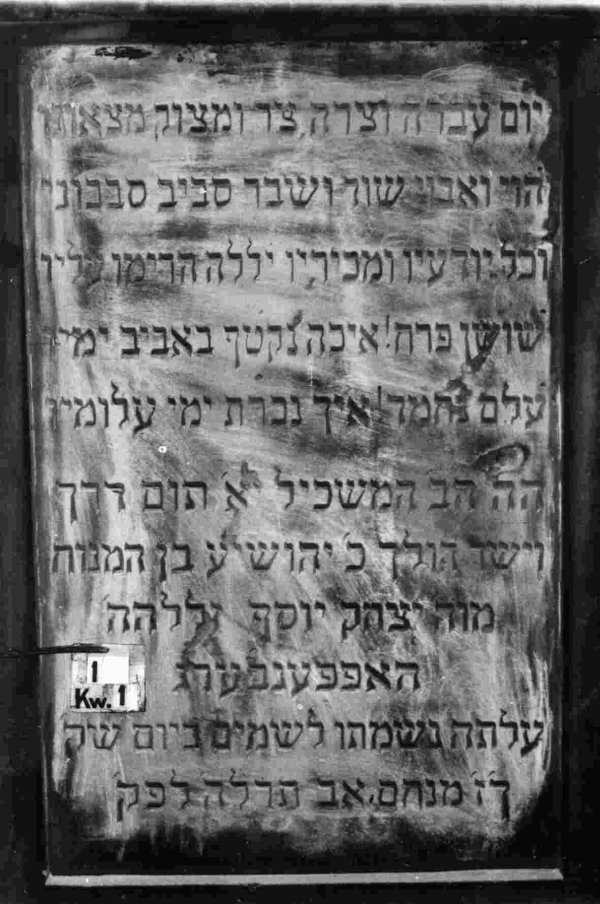 יום עברה וצרה צר ומצוק מצאוני
הוי ואבוי שוד ושבר סביב סבבוני
וכל יודעיו ומכיריו יללה הרימו עליו
שושן פרח! איכה נקטף באביב ימיו
עלם נחמד! איך נכרת ימי עלומיו
הה הב המשכיל יא תום דרך
וישר הולך כ׳ יהושיע בן המנוח
מוה יצחק יוסף זללהה
האפפענבערג
עלתה נשמתו לשמים ביום שק
ך״ז מנחם אב תרלה לפק
1
Kw. 1